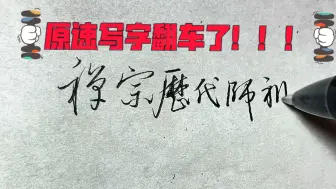 原速写字翻车了！！！
禅宗歷代師祖